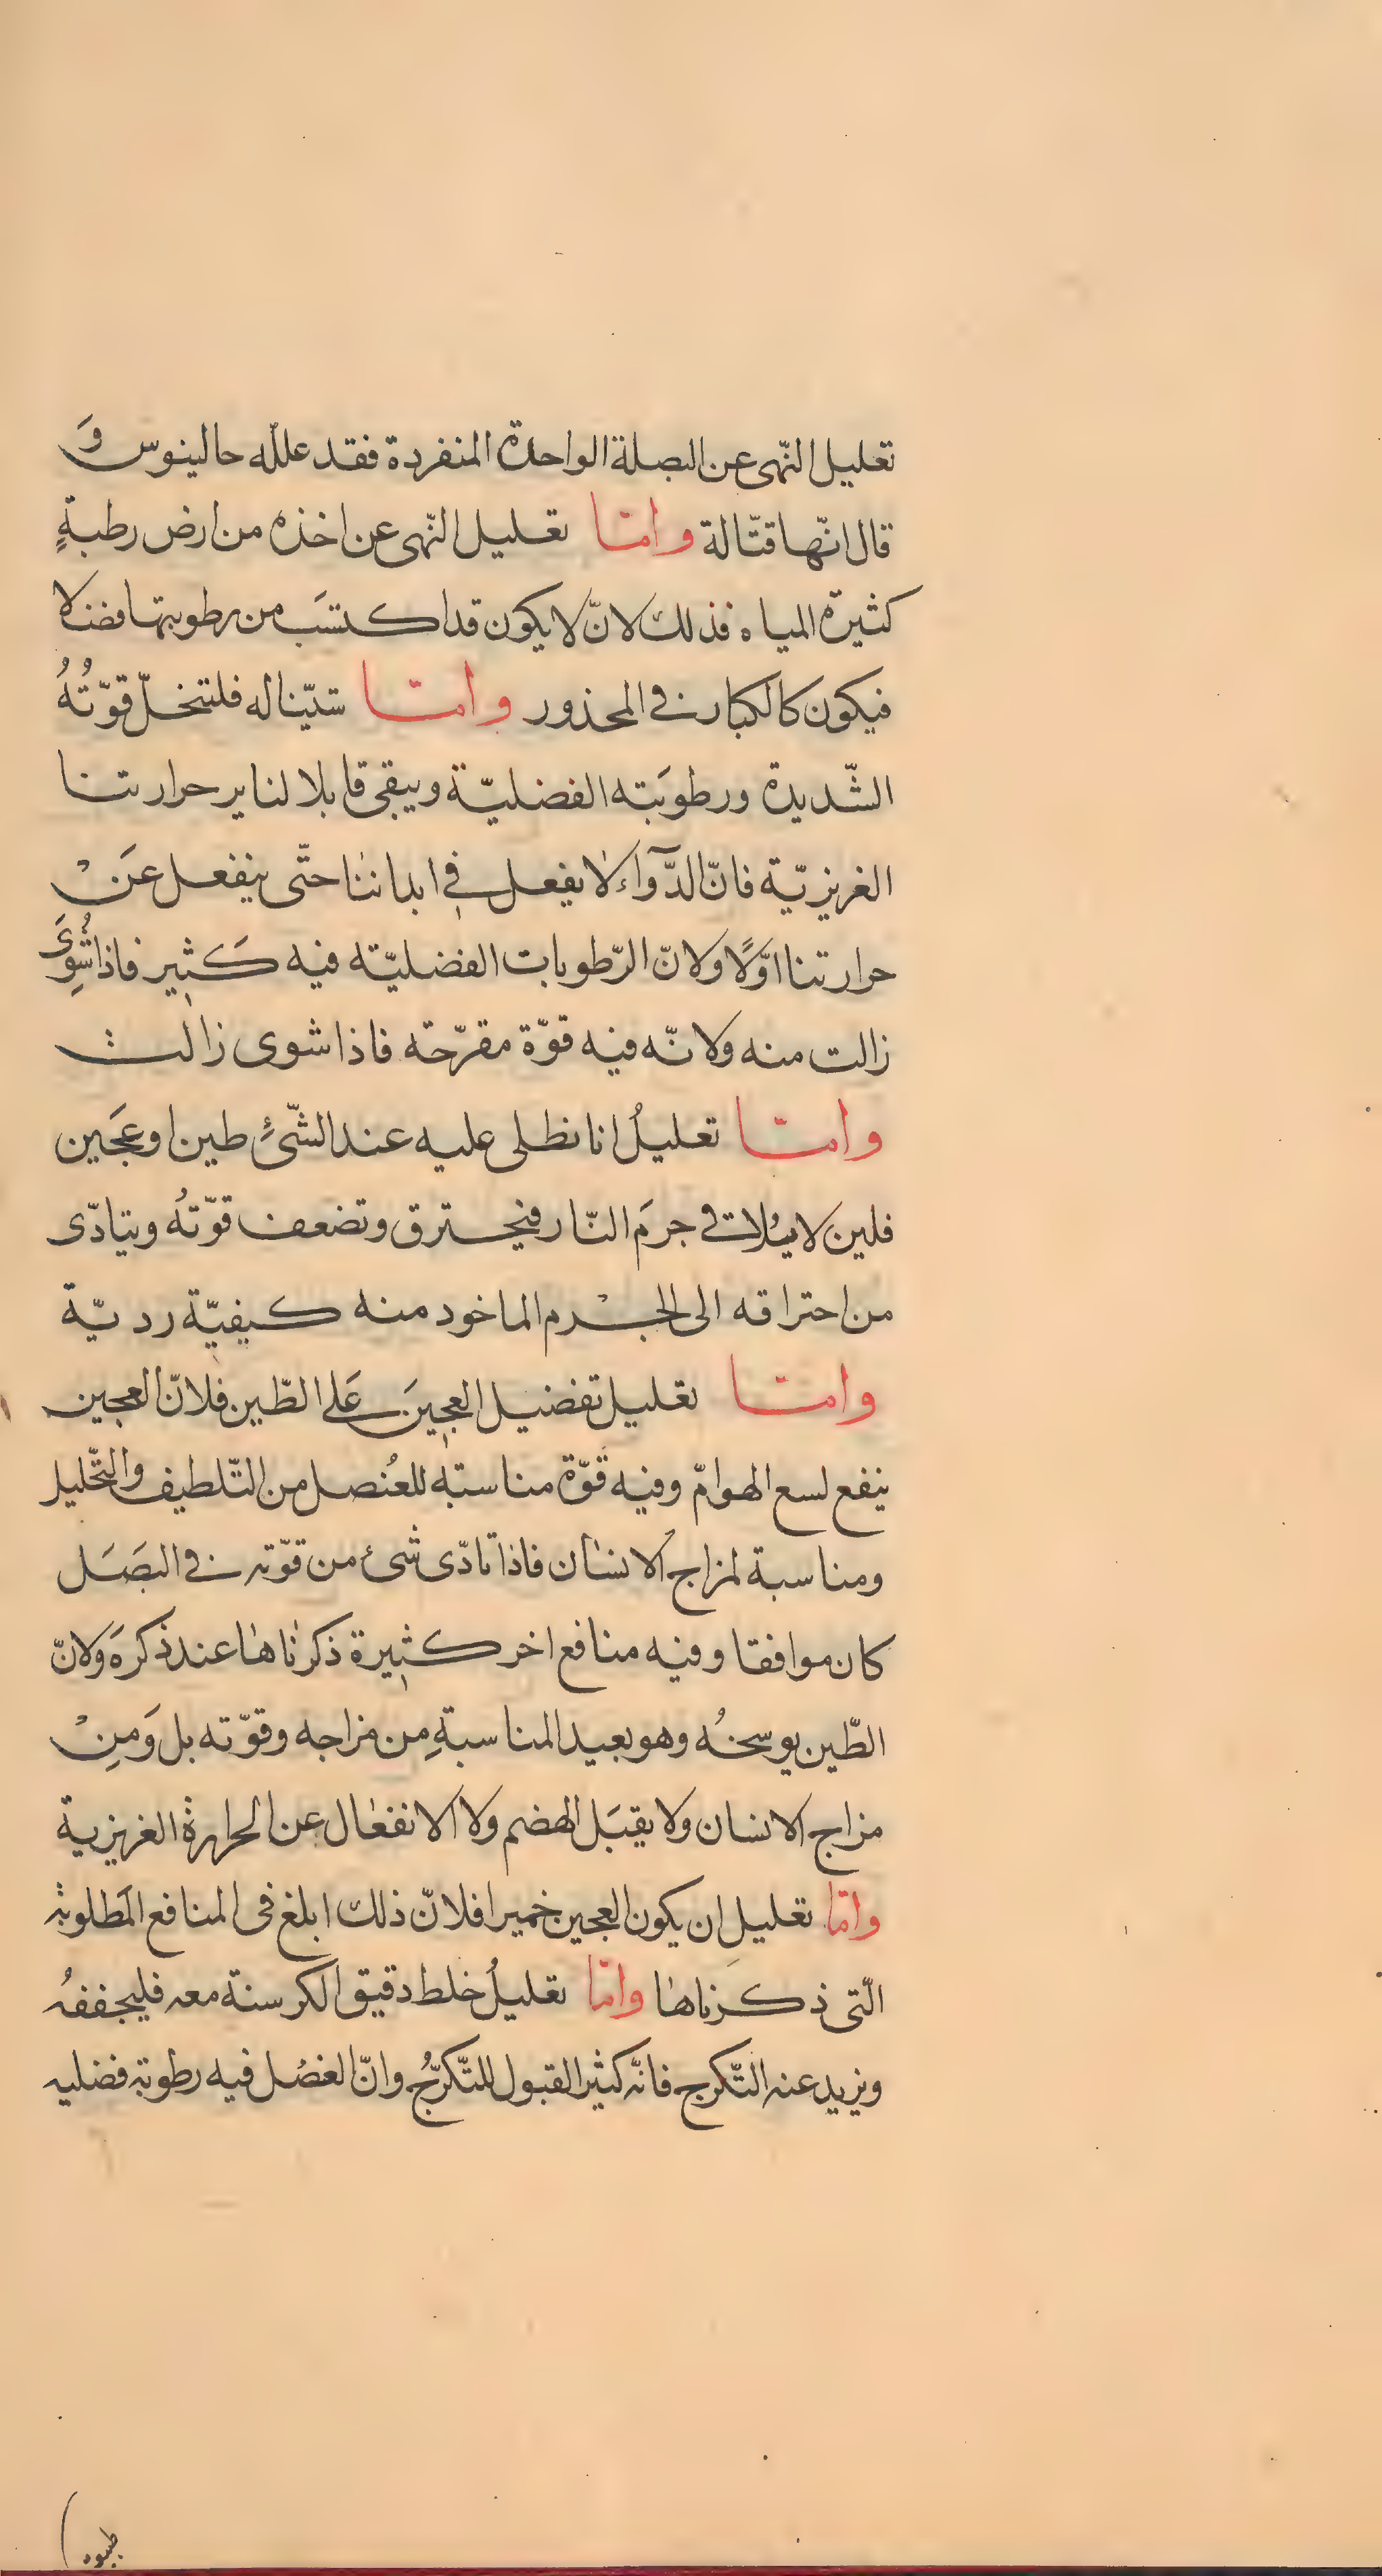 تعليل النّهى عن البصلة الواحدة المنفردة فقد علله حالينوس وَ
قال انّها قتّالة وامّا تعليل النّهى عن اخذه من ارض رطبةٍ
كثيرة المياه فذلك لانّ لا يكون قد اكتسَب من رطوبتها فضلا
فيكون كالكبار فى المحذور وامّا شيّنا له فلتخلّ قوّتُهُ
الشّديدة ورطوبَته الفضليّة ويبقى قابلا لناير حرارتنا
الغريزيّة فانّ الدّوآء لا يفعل فى ابداننا حتّى ينفعل عَنْ
حرارتنا اوّلًا ولانّ الرّطوبات الفضليّته فيه كَثير فاذا شُوِىَ
زالت منه ولانّه فيه قوّة مقرّحته فاذا شوى زالت
وامّا تعليلُ انا نطلى عليه عند الشّىِّ طين او عجَين
فلين لا يلات فى جرمَ النّار فيحترق وتضعف قوّتهُ ويتادّى
من احتراقه الى الجرْم الماخود منه كيفيّة رديّة
وامّا تعليل تفضيل العجينَ عَلى الطّين فلانّ العجين
ينفع لسع الهوامّ وفيه قوّة مناسبته للعُنصل من التّلطيف والتّحليل
ومناسبة لمزاج الانسان فاذا تادّى شئ من قوّته فى البَصَل
كان موافقا وفيه منافع اخر كثيرة ذكرناها عند ذكرهَ ولانّ
الطّين يوسخُه وهو بعيد المناسبةِ من مزاجه وقوّته بل وَمِنْ
مزاج الانسان ولا يقبَل الهضم ولا الانفعال عن الحرارة الغريزية
وامّا تعليل ان يكون العجين خميرا فلانّ ذلك ابلغ فى المنافع المَطلوبة
الّتى ذكرناها وامّا تعليلُ خلط دقيق الكرسنة معه فليجففهُ
ويزيد عنه التّكرج فانّه كثير القبول للتّكرّج وانّ لغصُل فيه رطوبة فضليه